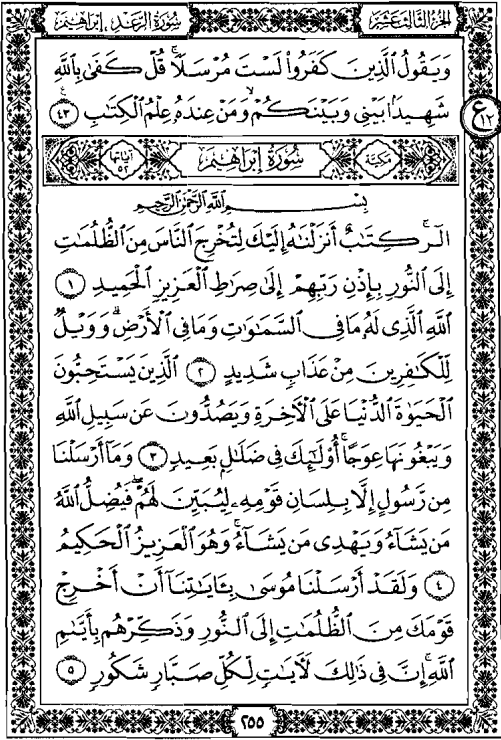 الجزء الثالث عشر سورة الرعد ـ إبراهيم
وَيَقُولُ ٱلَّذِينَ كَفَرُوا۟ لَسْتَ مُرْسَلًا ۚ قُلْ كَفَىٰ بِٱللَّهِ
شَهِيدًۢا بَيْنِى وَبَيْنَكُمْ وَمَنْ عِندَهُۥ عِلْمُ ٱلْكِتَـٰبِ ٤٣
ع ١٢
مكية سورة إبراهيم آياتها ٥٢
بِسْمِ ٱللَّهِ ٱلرَّحْمَـٰنِ ٱلرَّحِيمِ
الٓر ۚ كِتَـٰبٌ أَنزَلْنَـٰهُ إِلَيْكَ لِتُخْرِجَ ٱلنَّاسَ مِنَ ٱلظُّلُمَـٰتِ
إِلَى ٱلنُّورِ بِإِذْنِ رَبِّهِمْ إِلَىٰ صِرَٰطِ ٱلْعَزِيزِ ٱلْحَمِيدِ ١
ٱللَّهِ ٱلَّذِى لَهُۥ مَا فِى ٱلسَّمَـٰوَٰتِ وَمَا فِى ٱلْأَرْضِ ۗ وَوَيْلٌ
لِّلْكَـٰفِرِينَ مِنْ عَذَابٍ شَدِيدٍ ٢ ٱلَّذِينَ يَسْتَحِبُّونَ
ٱلْحَيَوٰةَ ٱلدُّنْيَا عَلَى ٱلْـَٔاخِرَةِ وَيَصُدُّونَ عَن سَبِيلِ ٱللَّهِ
وَيَبْغُونَهَا عِوَجًا ۚ أُو۟لَـٰٓئِكَ فِى ضَلَـٰلٍۭ بَعِيدٍ ٣ وَمَآ أَرْسَلْنَا
مِن رَّسُولٍ إِلَّا بِلِسَانِ قَوْمِهِۦ لِيُبَيِّنَ لَهُمْ ۖ فَيُضِلُّ ٱللَّهُ
مَن يَشَآءُ وَيَهْدِى مَن يَشَآءُ ۚ وَهُوَ ٱلْعَزِيزُ ٱلْحَكِيمُ
٤ وَلَقَدْ أَرْسَلْنَا مُوسَىٰ بِـَٔايَـٰتِنَآ أَنْ أَخْرِجْ
قَوْمَكَ مِنَ ٱلظُّلُمَـٰتِ إِلَى ٱلنُّورِ وَذَكِّرْهُم بِأَيَّىٰمِ
ٱللَّهِ ۚ إِنَّ فِى ذَٰلِكَ لَـَٔايَـٰتٍ لِّكُلِّ صَبَّارٍ شَكُورٍ ٥
٢٥٥